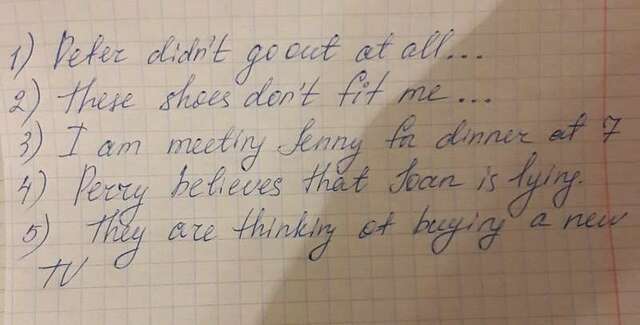 1) Peter didn't go out at all...
2) These shoes don't fit me...
3) I am meeting Jenny for dinner at 7
4) Perry believes that Joan is lying.
5) They are thinking of buying a new
TV